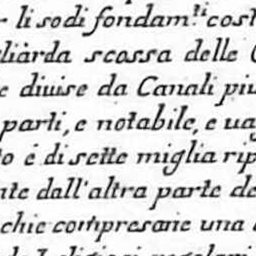 li sodi fondam.ti cost
gliarda scossa delle
e diuise da Canali piu
parti, e notabile, e ua
o è di sette miglia rip
nte dall'altra parte de
chie compresane una